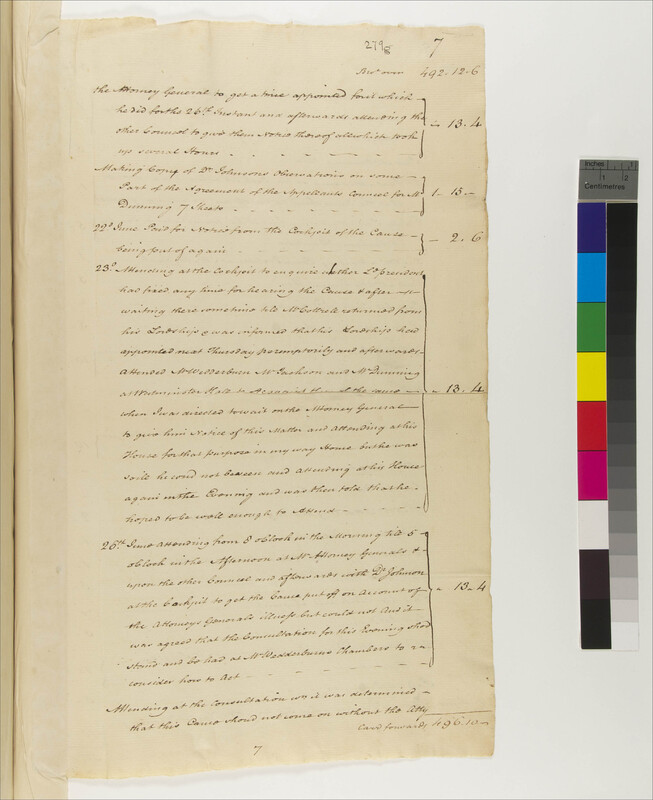 279/8
7
Bro't over 492-12-6
the Attorney General to get a time appointed for it which
he did for the 26th Instant and afterwards attending the
other Councel to give them Notice thereof all which took
up several Hours - 13-4
Making Copy of Dr Johnsons Observations on some
Part of the Agreement of the Appellants Councel for Mr
Dunning 7 Sheets 1-15-
22d June Paid for Notice from the Cockpit of the Cause
being put of again - 2.6
23d Attending at the Cockpit to enquire whether Ld President
had fixed any time for hearing the Cause & after
waiting there sometime till Mr Cottrell returned from
his Lordship & was informed that his Lordship had
appointed next Thursday peremptorily and afterwards
attended Mr Wedderburn Mr Jackson and Mr Dunning
at Westminster Hall to Acquaint them of the same - 13.4
when I was directed to wait on the Attorney General
to give him Notice of this Matter and Attending at his
House for that purpose in my way Home but he was
so ill he could not be seen and Attending at his House
again in the Evening and was then told that he
hoped to be well enough to Attend
26th June Attending from 8 oClock in the Morning till 5
oClock in the Afternoon at Mr Attorney Generals &
upon the other Councel and afterwards with Dr Johnson
at the Cockpit to get the Cause put off on Account of - 13-4
the Attorney Generals illness but could not And it
was agreed that the Consultation for this Evening shod
stand and be had at Mr Wedderburns Chambers to
consider how to Act
Attending at the Consultation it was determined
that this Cause should not come on without the Atty
Card forward 496.10-
7